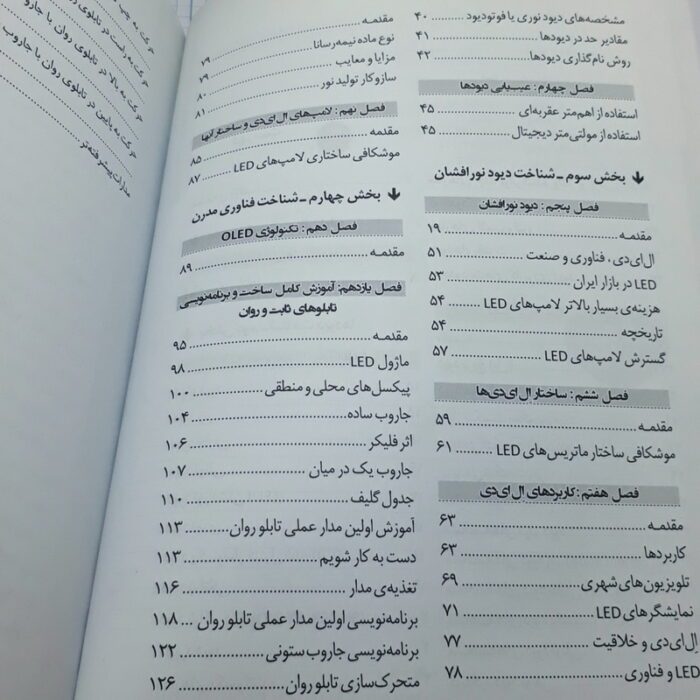 مشخصه‌های دیود نوری یا فوتودیود ............ ۴۰
مقادیر حد در دیودها ............ ۴۱
روش نام‌گذاری دیودها ............ ۴۲
فصل چهارم: عیب‌یابی دیودها
استفاده از اهم‌متر عقربه‌ای ............ ۴۵
استفاده از مولتی‌متر دیجیتال ............ ۴۵
بخش سوم - شناخت دیود نورافشان
فصل پنجم: دیود نورافشان
مقدمه ............ ۱۹
ال‌ای‌دی، فناوری و صنعت ............ ۵۱
LED در بازار ایران ............ ۵۳
هزینه‌ی بسیار بالاتر لامپ‌های LED ............ ۵۴
تاریخچه ............ ۵۴
گسترش لامپ‌های LED ............ ۵۷
فصل ششم: ساختار ال‌ای‌دی‌ها
مقدمه ............ ۵۹
موشکافی ساختار ماتریس‌های LED ............ ۶۱
فصل هفتم: کاربردهای ال‌ای‌دی
مقدمه ............ ۶۳
کاربردها ............ ۶۳
تلویزیون‌های شهری ............ ۶۹
نمایشگرهای LED ............ ۷۱
ال‌ای‌دی و خلاقیت ............ ۷۷
LED و فناوری ............ ۷۸
مقدمه
نوع ماده نیمه‌رسانا ............ ۷۹
مزایا و معایب ............ ۷۹
سازوکار تولید نور ............ ۸۰
............ ۸۱
فصل نهم: لامپ‌های ال‌ای‌دی و ساختار آنها
مقدمه ............ ۸۵
موشکافی ساختاری لامپ‌های LED ............ ۸۷
بخش چهارم - شناخت فناوری مدرن
فصل دهم: تکنولوژی OLED
مقدمه ............ ۸۹
فصل یازدهم: آموزش کامل ساخت و برنامه‌نویسی
تابلوهای ثابت و روان
مقدمه ............ ۹۵
ماژول LED ............ ۹۸
پیکسل‌های محلی و منطقی ............ ۱۰۰
جاروب ساده ............ ۱۰۴
اثر فلیکر ............ ۱۰۶
جاروب یک در میان ............ ۱۰۷
جدول گلیف ............ ۱۱۰
آموزش اولین مدار عملی تابلو روان ............ ۱۱۳
دست به کار شویم ............ ۱۱۳
تغذیه‌ی مدار ............ ۱۱۶
برنامه‌نویسی اولین مدار عملی تابلو روان ... ۱۱۸
برنامه‌نویسی جاروب ستونی ............ ۱۲۲
متحرک‌سازی تابلو روان ............ ۱۲۶
حرکت به چپ
حرکت به راست در تابلوی روان
حرکت به بالا در تابلوی روان با جاروب
حرکت به پایین در تابلوی روان با جاروب
مدارات پیشرفته‌تر